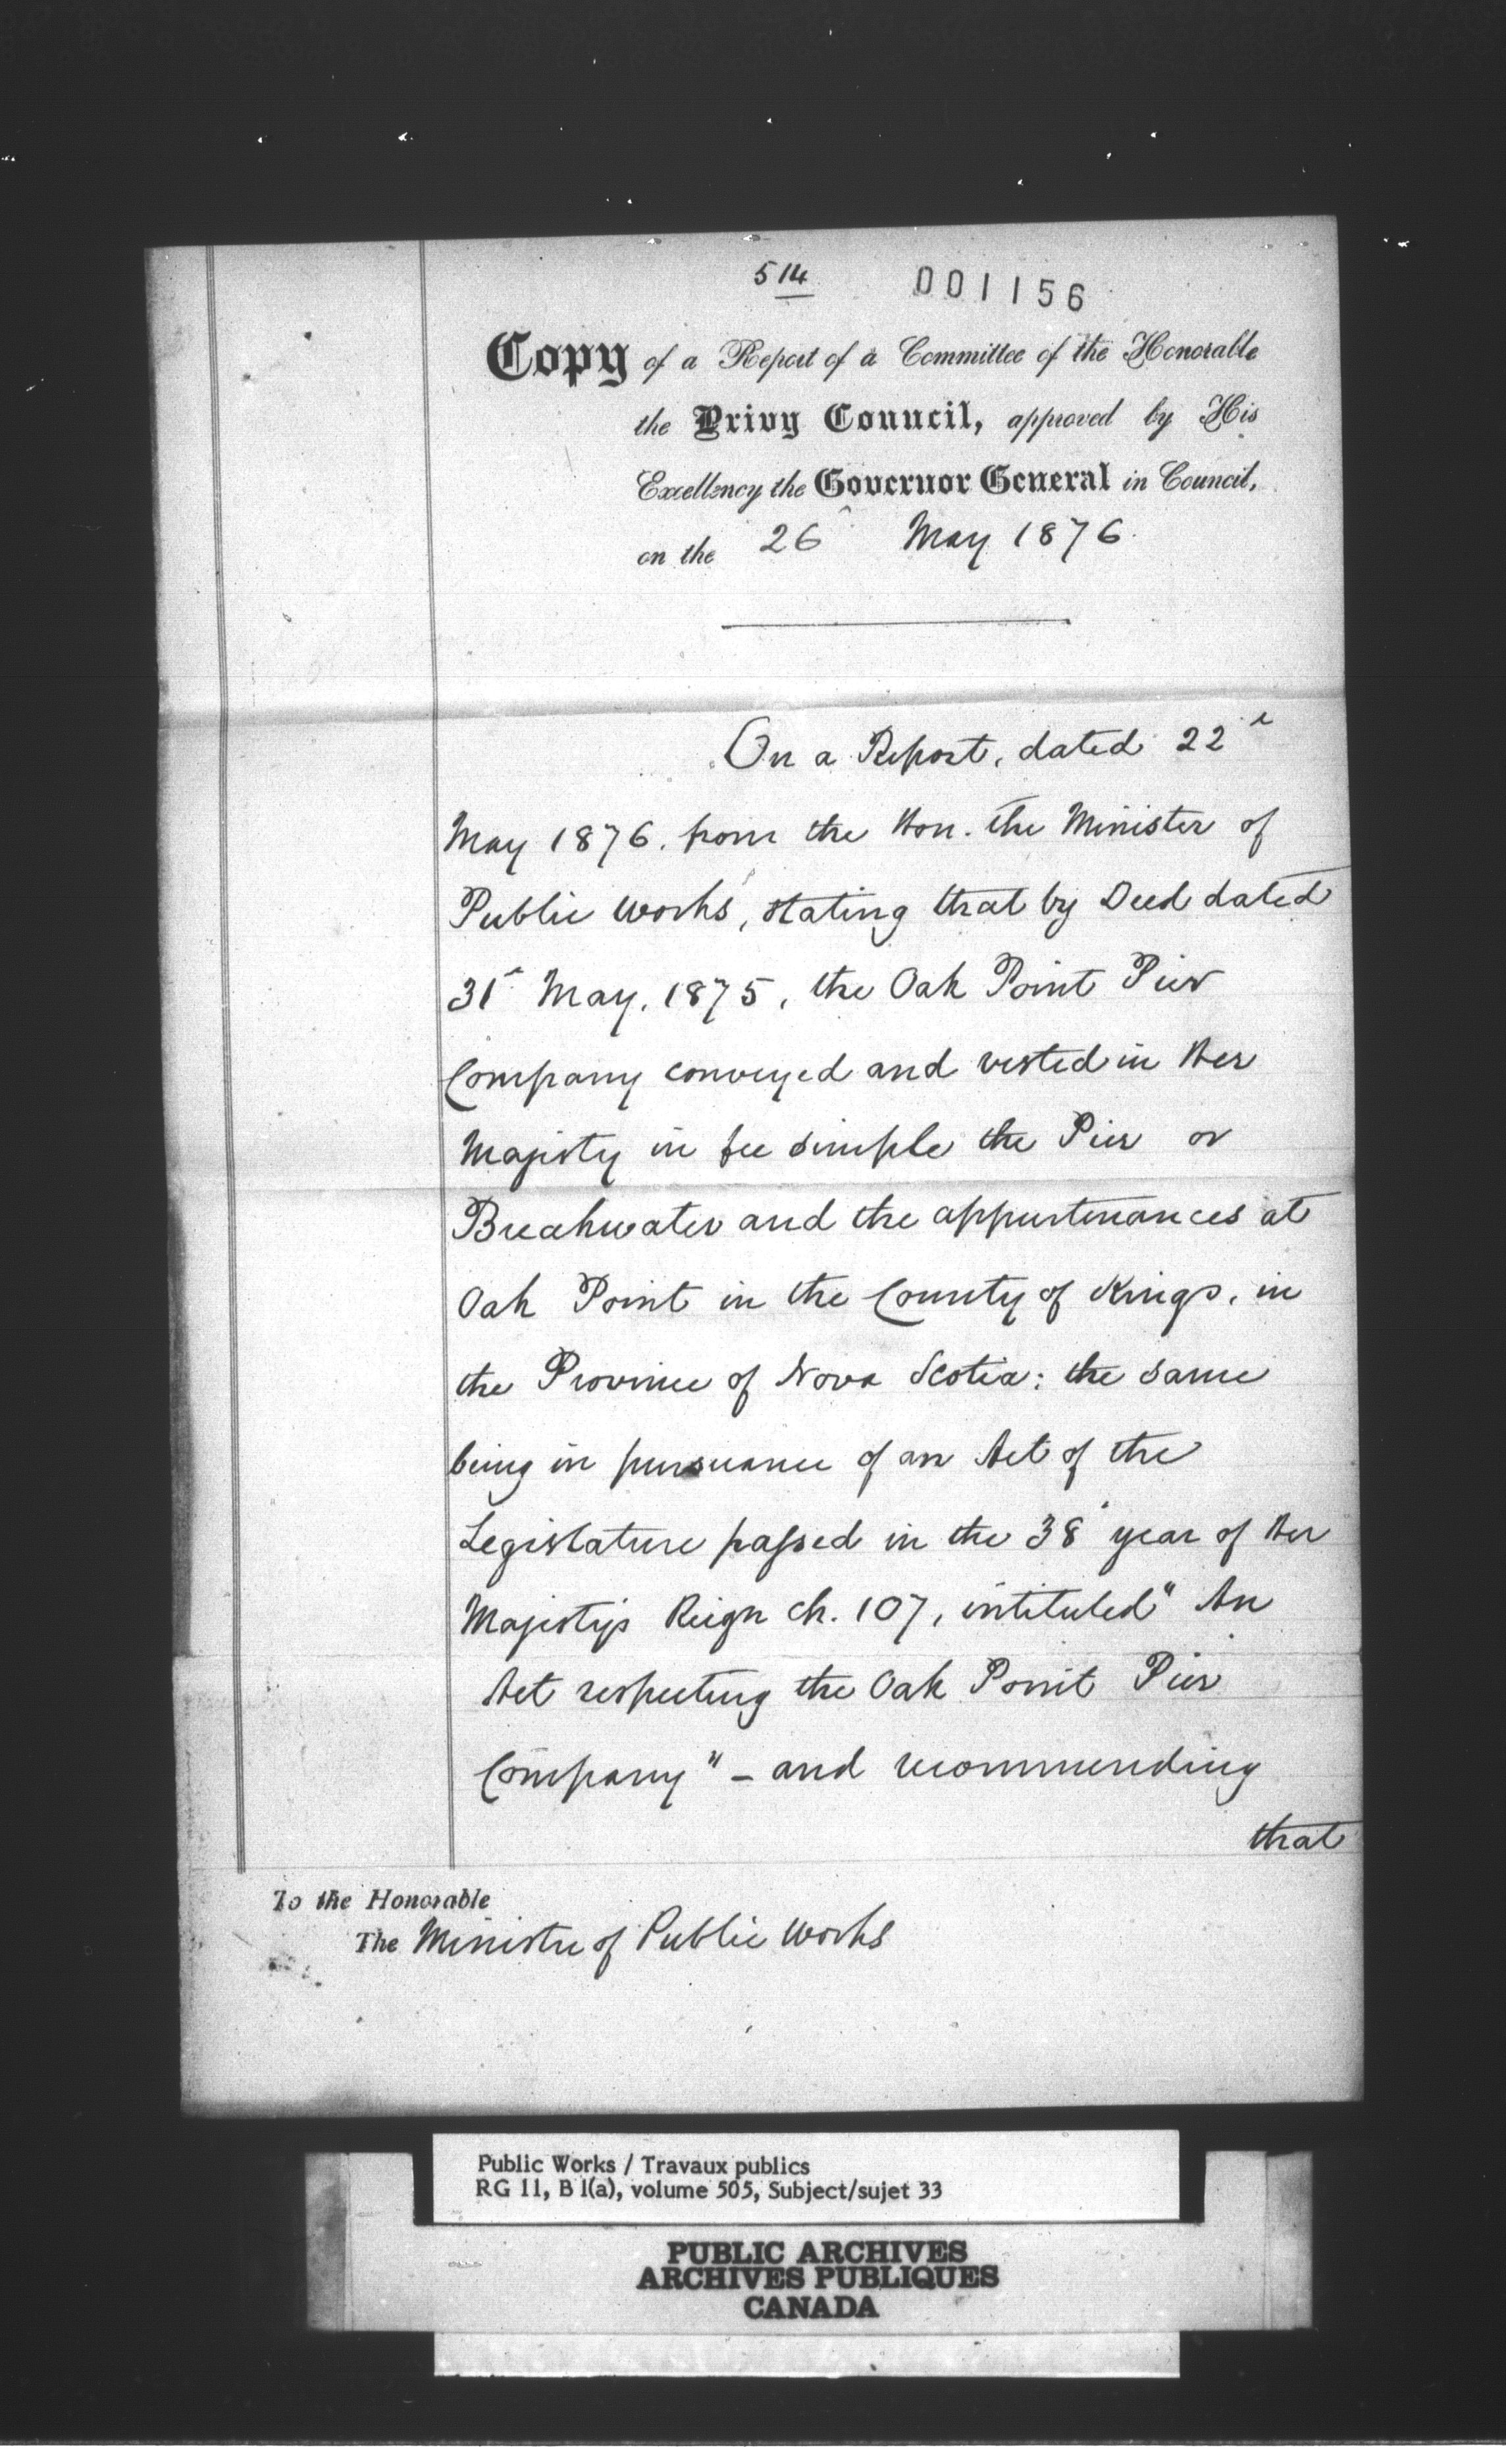 514
001156
Copy of a Report of a Committee of the Honorable
the Privy Council, approved by His
Excellency the Governor General in Council,
on the 26 May 1876.
On a Report, dated 22
May 1876. from the Hon. the Minister of
Public Works, stating that by Deed dated
31st May, 1875, the Oak Point Pier
Company conveyed and vested in Her
Majesty in fee simple the Pier or
Breakwater and the appurtenances at
Oak Point in the County of Kings, in
the Province of Nova Scotia: the same
being in pursuance of an Act of the
Legislature passed in the 38 year of Her
Majesty's Reign ch. 107, intituled "An
Act respecting the Oak Point Pier
Company" – and recommending
that
To the Honorable
The Minister of Public Works
Public Works / Travaux publics
RG 11, B 1(a), volume 505, Subject/sujet 33
PUBLIC ARCHIVES
ARCHIVES PUBLIQUES
CANADA